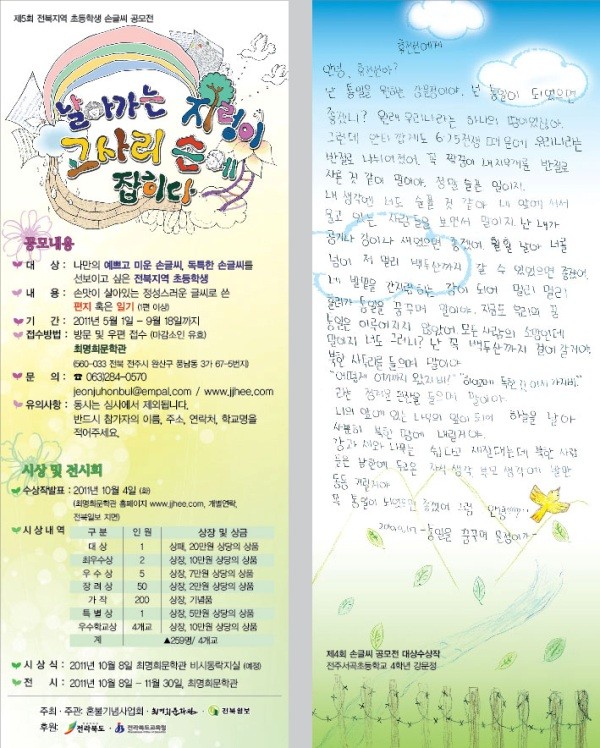 제5회 전북지역 초등학생 손글씨 공모전
날아가는 지렁이
고사리 손에
잡히다
공모내용
대 상 : 나만의 예쁘고 미운 손글씨, 독특한 손글씨를
선보이고 싶은 전북지역 초등학생
내 용 : 손맛이 살아있는 정성스러운 글씨로 쓴
편지 혹은 일기 (1편 이상)
기 간 : 2011년 5월 1일 - 9월 18일까지
접수방법 : 방문 및 우편 접수 (마감소인 유효)
최명희문학관
(560-033 전북 전주시 완산구 풍남동 3가 67-5번지)
문 의 : ☎ 063)284-0570
jeonjuhonbul@empal.com / www.jjhee.com
유의사항 : 동시는 심사에서 제외됩니다.
반드시 참가자의 이름, 주소, 연락처, 학교명을
적어주세요.
시상 및 전시회
수상작발표 : 2011년 10월 4일 (화)
(최명희문학관 홈페이지 www.jjhee.com, 개별연락,
전북일보 지면)
시상내역
구 분 인 원 상장 및 상금
대 상 1 상패, 20만원 상당의 상품
최우수상 2 상장, 10만원 상당의 상품
우 수 상 5 상장, 7만원 상당의 상품
장 려 상 50 상장, 2만원 상당의 상품
가 작 200 상장, 기념품
특 별 상 1 상장, 5만원 상당의 상품
우수학교상 4개교 상장, 10만원 상당의 상품
계 ▲259명/ 4개교
시 상 식 : 2011년 10월 8일 최명희문학관 비시동락지실 (예정)
전 시 : 2011년 10월 8일 - 11월 30일, 최명희문학관
주최 · 주관: 혼불기념사업회 · 최명희문학관 · 전북일보
후원: 전라북도 · 전라북도교육청
휴전선에게
안녕, 휴전선아?
난 통일을 원하는 강문정이야. 넌 통일이 되었으면
좋겠니? 원래 우리나라는 하나의 땅이었잖아.
그런데 안타깝게도 6.25전쟁 때문에 우리나라는
반절로 나뉘어졌어. 꼭 팥떡이 내 지우개를 반절로
자른 것 같이 말이야. 정말 슬픈 일이지.
내 생각엔 너도 슬플 것 같아. 네 앞에 서서
울고 있는 사람들을 보면서 말이지. 난 내가
공기나 강이나 새였으면 좋겠어. 훨훨 날아 너를
넘어 저 멀리 백두산까지 갈 수 있었으면 좋겠어.
네 발밑을 간지럽히는 강이 되어 멀리 멀리
흘러가 통일을 꿈꾸며 말이야. 지금도 우리의 꿈
통일은 이루어지지 않았어. 모든 사람의 소망인데
말이지 너도 그러니? 난 꼭 백두산까지 걸어 갈거야.
북한 사투리를 들으며 말이야.
라는 정겨운 말을 들으며 말이야.
너의 옆에 있는 나무의 잎이 되어 하늘을 날아
사뿐히 북한 땅에 내릴거야.
강과 새와 나무는 쉽다고 재잘대는데 북한 사람
들은 남한에 두고온 자식 생각 부모 생각에 발만
동동 거릴거야
꼭 통일이 되었으면 좋겠어 그럼 안녕
제4회 손글씨 공모전 대상수상작
전주서곡초등학교 4학년 강문정